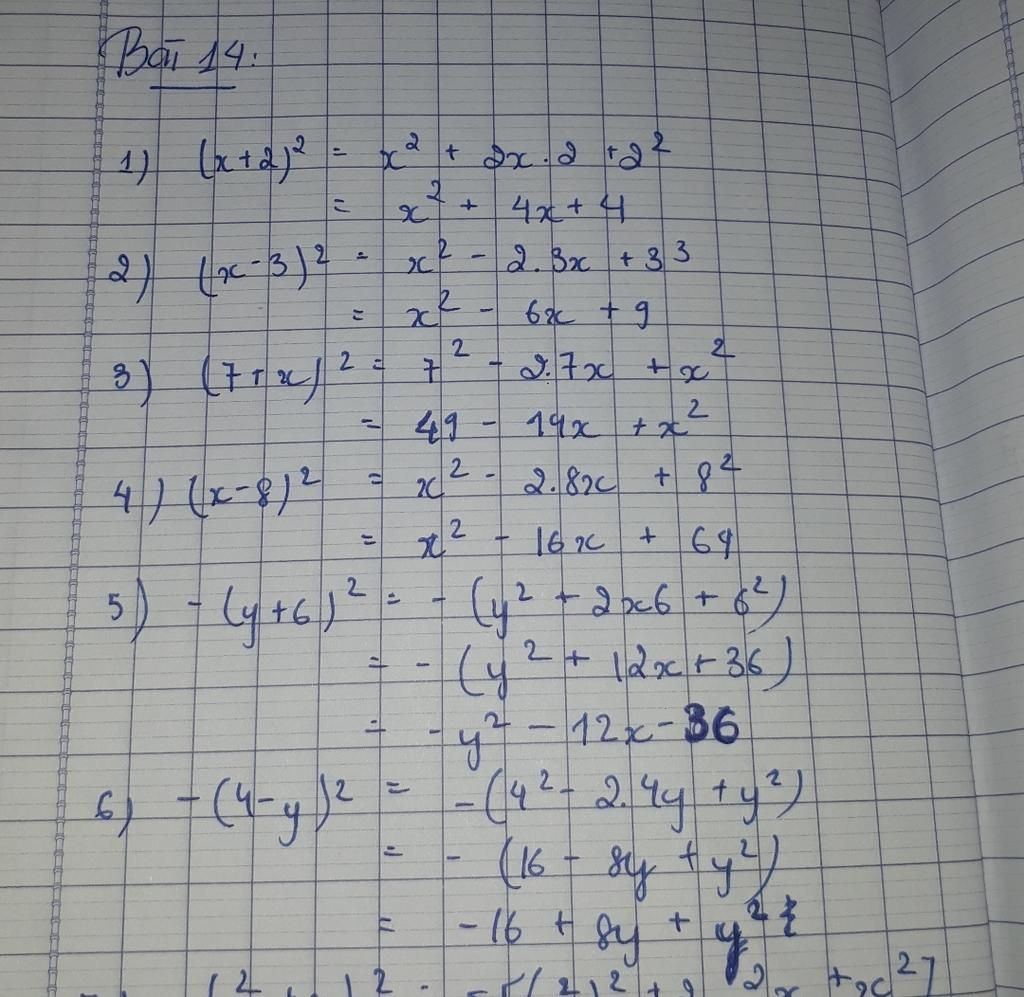 Bài 14:
1) (x+2)² = x² + 2x.2 +2²
= x² + 4x + 4
2) (x-3)² = x² - 2.3x + 3³
= x² - 6x + 9
3) (7+x)² = 7² - 2.7x + x²
= 49 - 14x + x²
4) (x-8)² = x² - 2.8x + 8²
= x² - 16x + 64
5) -(y+6)² = -(y² + 2x6 + 6²)
= -(y² + 12x + 36)
= -y² - 12x - 36
6) -(4-y)² = -(4² - 2.4y + y²)
= -(16 - 8y + y²)
= -16 + 8y + y²